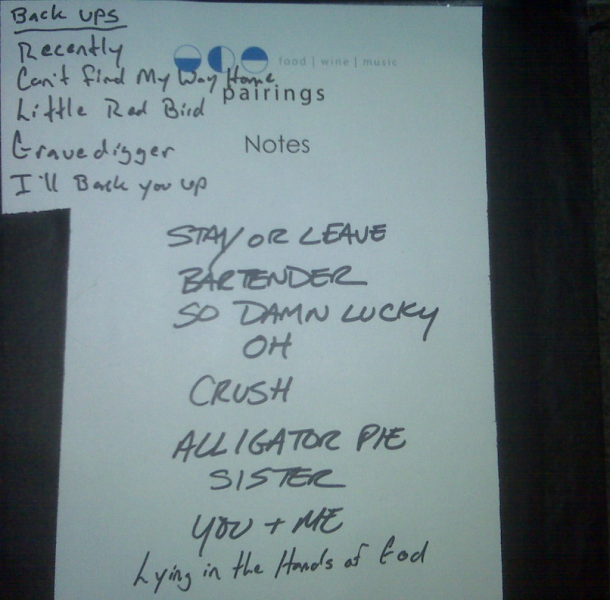 Back ups
Recently
Can't Find My Way Home
Little Red Bird
Gravedigger
I'll Back you up
food | wine | music
pairings
Notes
STAY OR LEAVE
BARTENDER
SO DAMN LUCKY
OH
CRUSH
ALLIGATOR PIE
SISTER
YOU + ME
Lying in the Hands of God